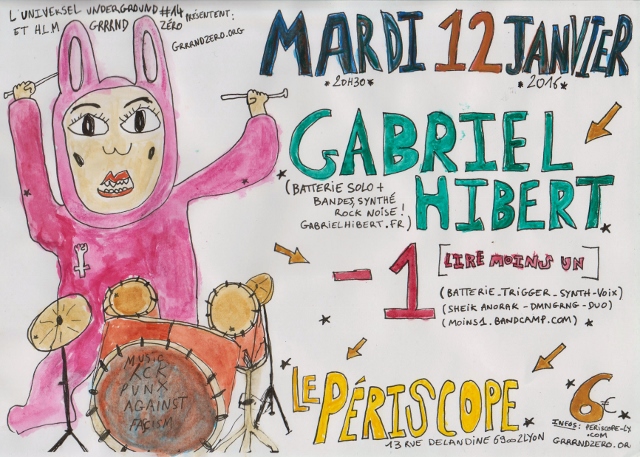 L'UNIVERSEL UNDERGROUND #14
ET H.L.M GRRRND ZÉRO PRÉSENTENT:
GRRRNDZERO.ORG
MARDI 12 JANVIER
*20H30* *2016*
GABRIEL
HIBERT
(BATTERIE SOLO +
BANDES, SYNTHÉ
ROCK NOISE!
GABRIELHIBERT.FR)
-1 [LIRE MOINS UN]
(BATTERIE_TRIGGER_SYNTH-VOIX)
(SHEIK ANORAK - DMNGRNG - DUO)
(MOINS1.BANDCAMP.COM)
MUSIC
PUNX
AGAINST
FACISM
LE PÉRISCOPE
13 RUE DELANDINE 69002 LYON
6€
INFOS: PERISCOPE-LY
.COM
GRRRNDZERO.OR